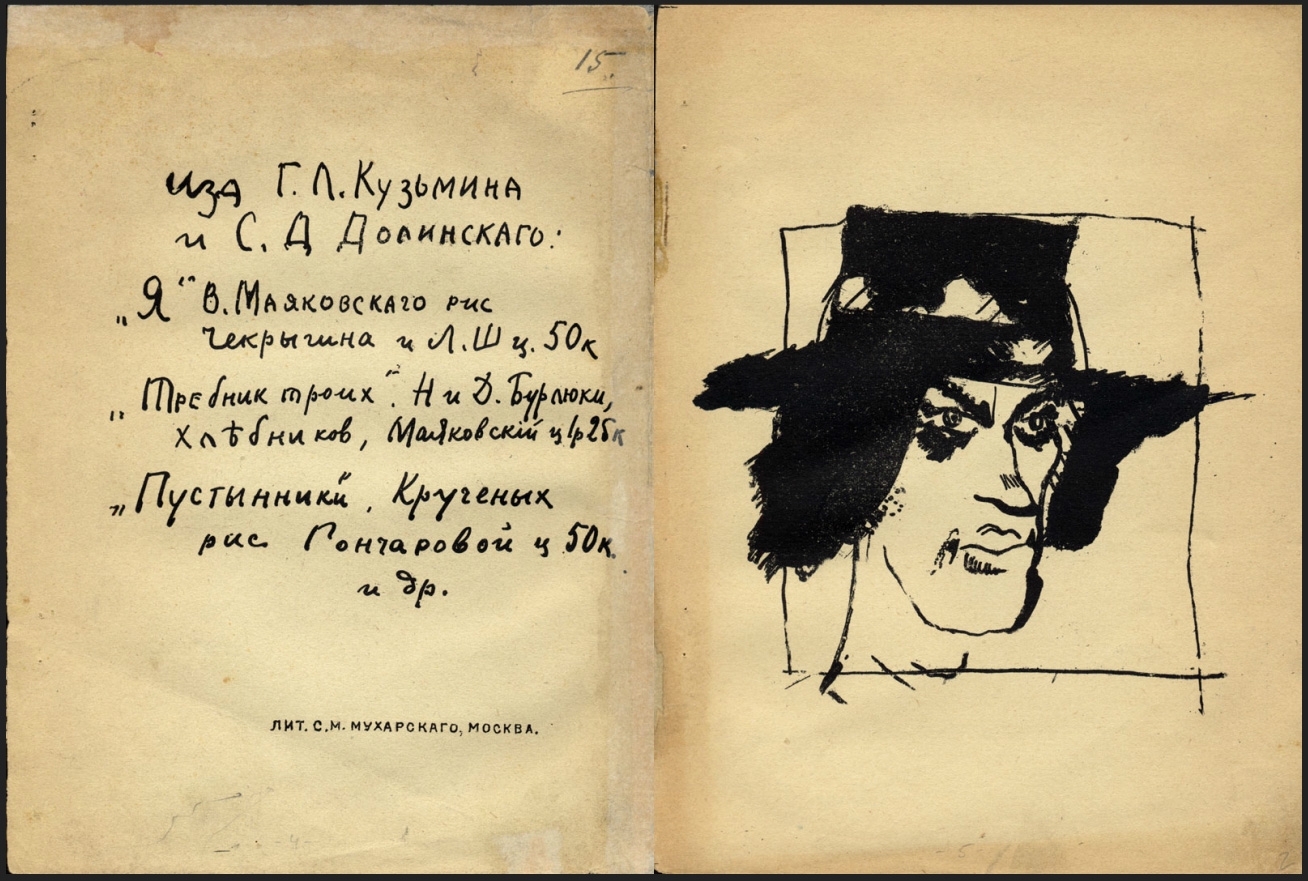 15.
изд Г. Л. Кузьмина
и С. Д Долинскаго:
„Я“ В. Маяковскаго рис
Чекрыгина и Л. Ш ц. 50к
„Требник троих“. Н и Д. Бурлюки,
Хлѣбников, Маяковскій ц 1р 25к
„Пустынники“, Крученых
рис Гончаровой ц 50к.
и др.
ЛИТ. С.М. МУХАРСКАГО, МОСКВА.